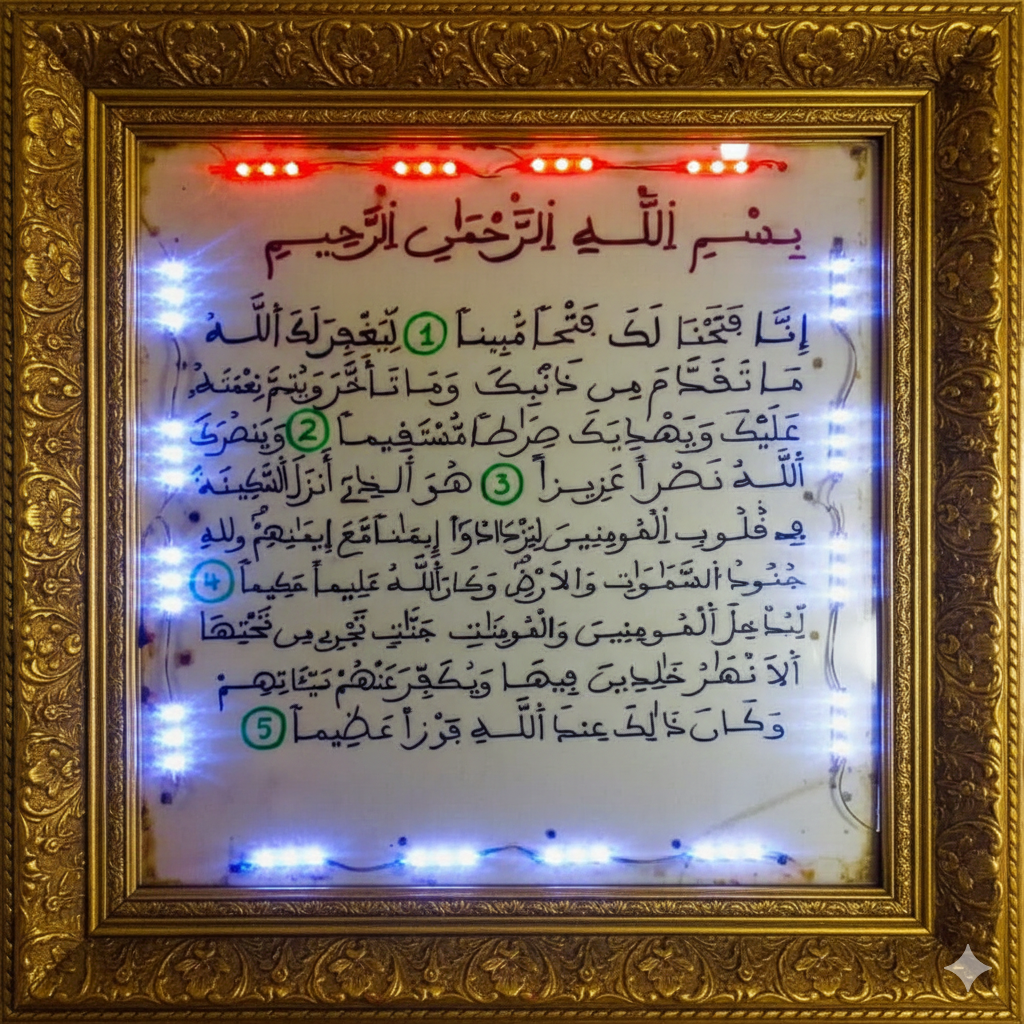 بِسْمِ اِ۬للَّهِ اِ۬لرَّحْمَٰنِ اِ۬لرَّحِيمِ
إِنَّا فَتَحْنَا لَكَ فَتْحاٗ مُّبِيناٗ 1 لِّيَغْفِرَ لَكَ اَ۬للَّهُ
مَا تَقَدَّمَ مِن ذَنۢبِكَ وَمَا تَأَخَّرَ وَيُتِمَّ نِعْمَتَهُۥ
عَلَيْكَ وَيَهْدِيَكَ صِرَٰطاٗ مُّسْتَقِيماٗ 2 وَيَنصُرَكَ
اَ۬للَّهُ نَصْراً عَزِيزاً 3 هُوَ اَ۬لذِے أَنزَلَ اَ۬لسَّكِينَةَ
فِے قُلُوبِ اِ۬لْمُومِنِينَ لِيَزْدَادُوٓاْ إِيمَٰناٗ مَّعَ إِيمَٰنِهِمْ ولله
جُنُودُ اُ۬لسَّمَٰوَٰتِ وَالَارْضِ وَكَانَ اَ۬للَّهُ عَلِيماً حَكِيماٗ 4
لِّيُدْخِلَ اَ۬لْمُومِنِينَ وَالْمُومِنَٰتِ جَنَّٰتٖ تَجْرِے مِن تَحْتِهَا
اَ۬لَانْهَٰرُ خَٰلِدِينَ فِيهَا وَيُكَفِّرَ عَنْهُمْ سَيِّـَٔاتِهِمْ
وَكَانَ ذَٰلِكَ عِندَ اَ۬للَّهِ فَوْزاً عَظِيماٗ 5